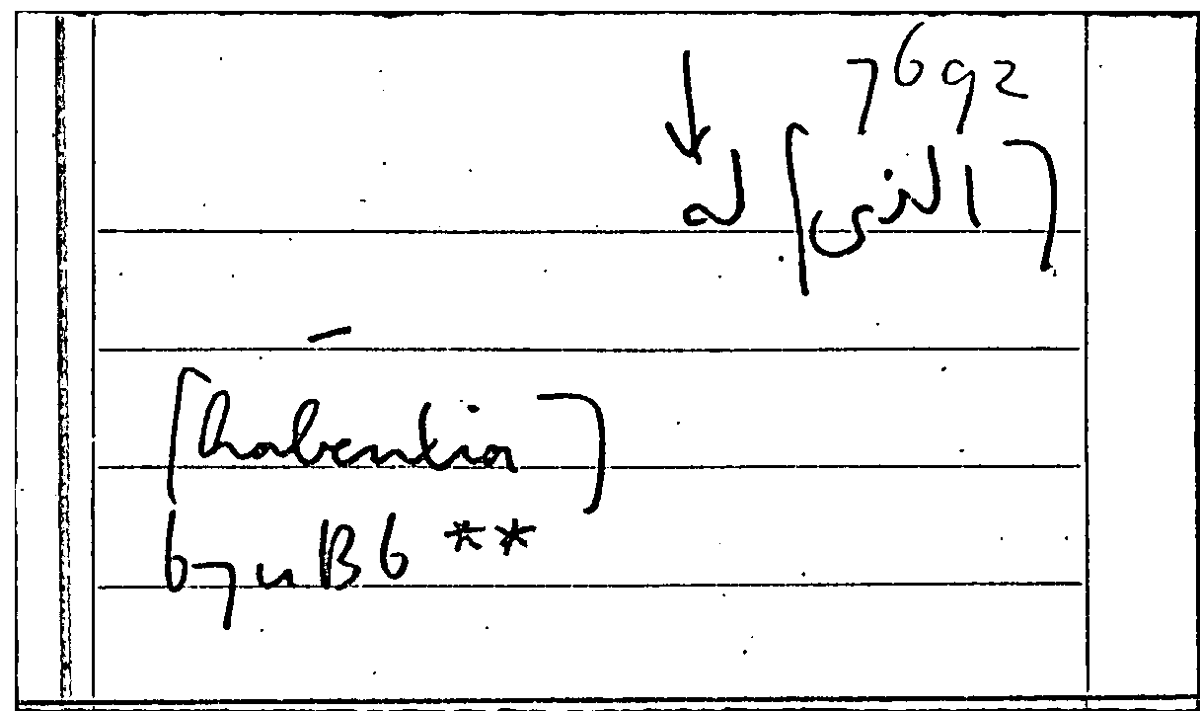 7692
[الذي] له
[habentia]
67uB6 **